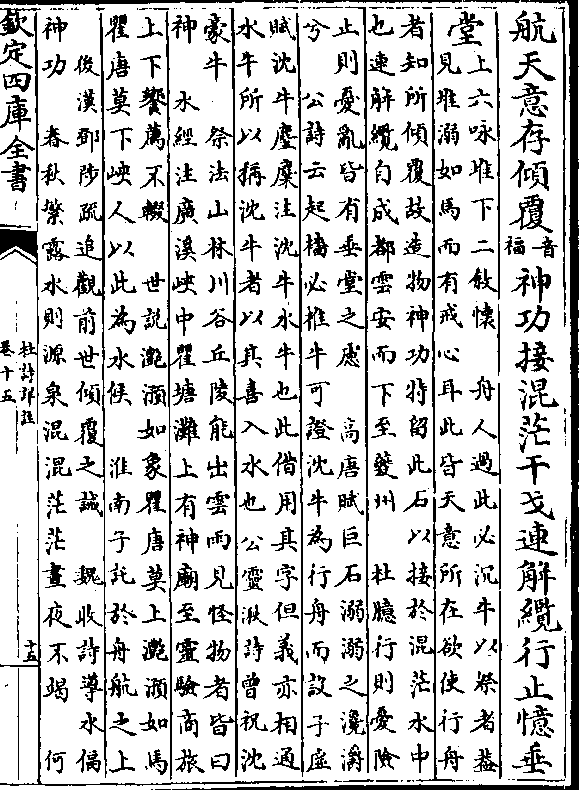 航天意存傾覆音福神功接混茫干戈連解纜行止憶垂
堂
上六咏堆下二敘懷　舟人過此必沉牛以祭者蓋
見堆溺如馬而有戒心耳此皆天意所在欲使行舟
者知所傾覆故造物神功特留此石以接於混茫水中
也連解纜自成都雲安而下至夔州　杜臆行則憂險
止則憂亂皆有垂堂之慮　高唐賦巨石溺溺之瀺灂
兮　公詩云起檣必椎牛可證沈牛為行舟而設子虛
賦沈牛麈麋注沈牛水牛也此借用其字但義亦相通
水牛所以稱沈牛者以其喜入水也　公靈湫詩曾祝沈
豪牛　祭法山林川谷丘陵能出雲雨見怪物者皆曰
神　水經注廣溪峽中瞿塘灘上有神廟至靈驗商旅
上下饗薦不輟　世説灔澦如象瞿唐莫上灔澦如馬
瞿唐莫下峽人以此為水候　淮南子託於舟航之上
後漢鄧陟疏追觀前世傾覆之誡　魏收詩導水偏
神功　春秋繁露水則源泉混混茫茫晝夜不竭　何
欽定四庫全書
杜詩詳註
卷十五
十五